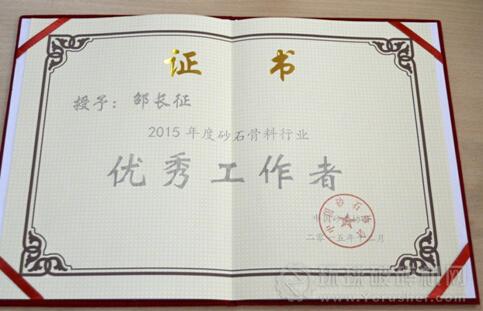 证 书
授予：邵长征
2015年度砂石骨料行业
优秀工作者
中国砂石协会
二〇一五年十二月
环球破碎机网
www.Ycrusher.com